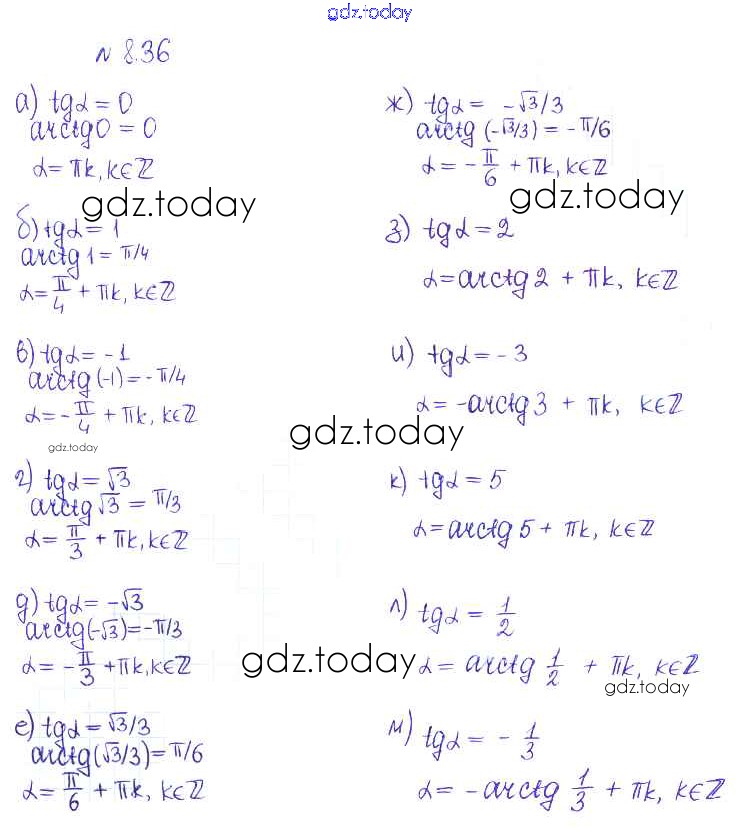 gdz.today
№ 8.36
а) tgα = 0
arctg 0 = 0
α = πk, k∈ℤ
gdz.today
б) tgα = 1
arctg 1 = π/4
α = π/4 + πk, k∈ℤ
в) tgα = -1
arctg (-1) = -π/4
α = -π/4 + πk, k∈ℤ
gdz.today
г) tgα = √3
arctg √3 = π/3
α = π/3 + πk, k∈ℤ
д) tgα = -√3
arctg(-√3) = -π/3
α = -π/3 + πk, k∈ℤ
е) tgα = √3/3
arctg(√3/3) = π/6
α = π/6 + πk, k∈ℤ
ж) tgα = -√3/3
arctg (-√3/3) = -π/6
α = -π/6 + πk, k∈ℤ
gdz.today
з) tgα = 2
α = arctg 2 + πk, k∈ℤ
и) tgα = -3
α = -arctg 3 + πk, k∈ℤ
gdz.today
к) tgα = 5
α = arctg 5 + πk, k∈ℤ
л) tgα = 1/2
α = arctg 1/2 + πk, k∈ℤ
gdz.today
gdz.today
м) tgα = -1/3
α = -arctg 1/3 + πk, k∈ℤ